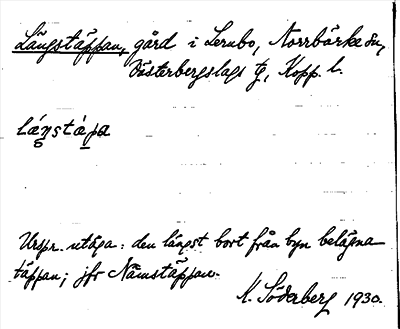 Långstäppan, gård i Lernbo, Norrbärke sn,
Västerbergslags tg, Kopp. l.
lá̢ŋstäpa
Urspr. utäga: den längst bort från byn belägna
täppan; jfr Nämstäppan.
K. Söderberg 1930.